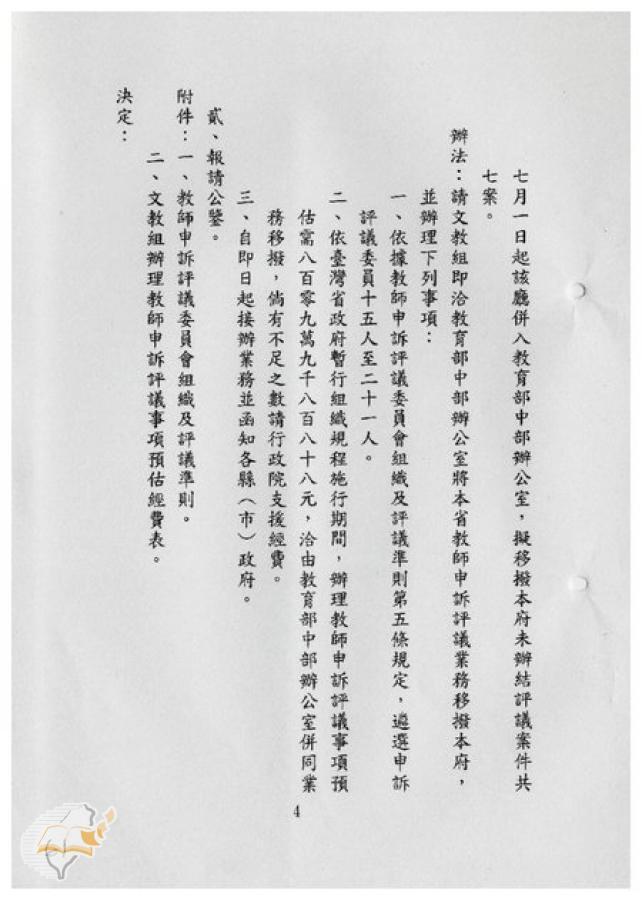 七月一日起該廳併入教育部中部辦公室，擬移撥本府未辦結評議案件共
七案。
辦法：請文教組即洽教育部中部辦公室將本省教師申訴評議業務移撥本府，
並辦理下列事項：
一、依據教師申訴評議委員會組織及評議準則第五條規定，遴選申訴
評議委員十五人至二十一人。
二、依臺灣省政府暫行組織規程施行期間，辦理教師申訴評議事項預
估需八百零九萬九千八百八十八元，洽由教育部中部辦公室併同業
務移撥，倘有不足之數請行政院支援經費。
三、自即日起接辦業務並函知各縣（市）政府。
貳、報請公鑒。
附件：一、教師申訴評議委員會組織及評議準則。
二、文教組辦理教師申訴評議事項預估經費表。
決定：
4